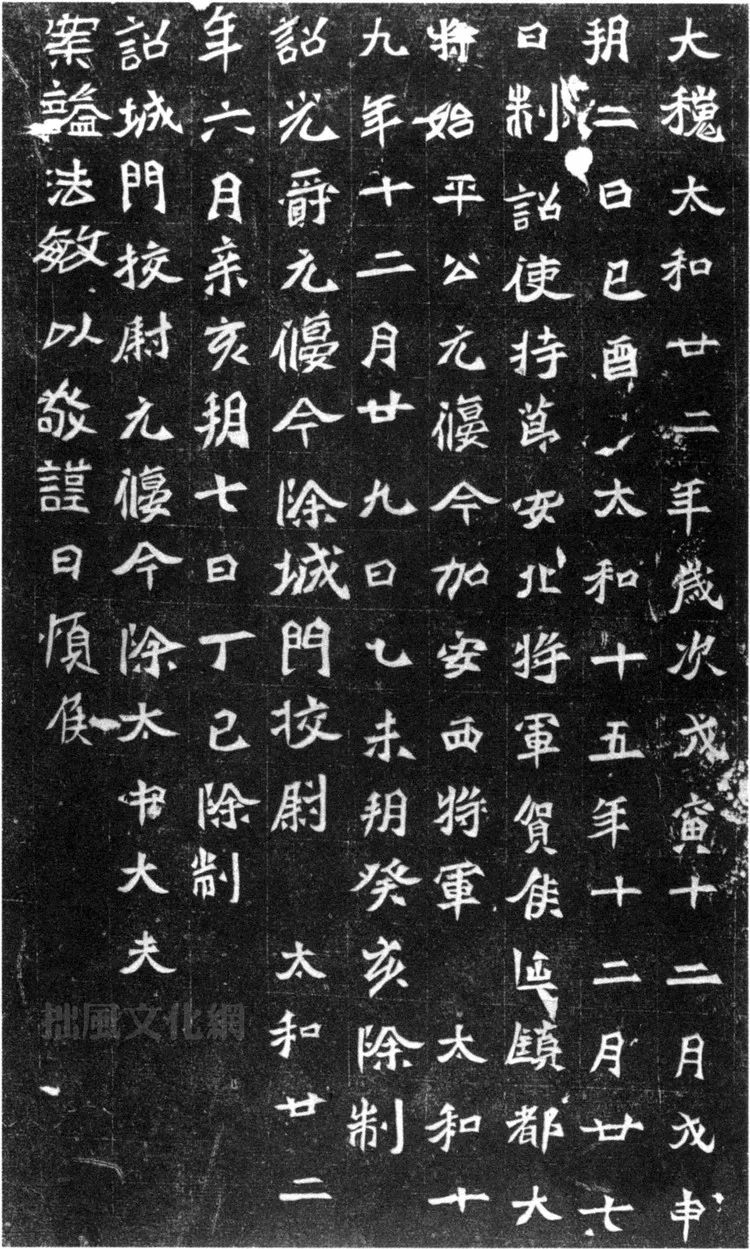 大魏太和廿二年歲次戊寅十二月戊申
朔二日己酉太和十五年十二月廿七
日制詔使持節安北將軍賀侯延鎮都大
將始平公元偃今加安西將軍　太和十
九年十二月廿九日乙未朔癸亥除制
詔光爵元偃今除城門挍尉　太和廿二
年六月亲亥朔七日丁巳除制
詔城門挍尉元偃今除太中大夫
案謚法敏以敬謹曰順侯
拙風文化網